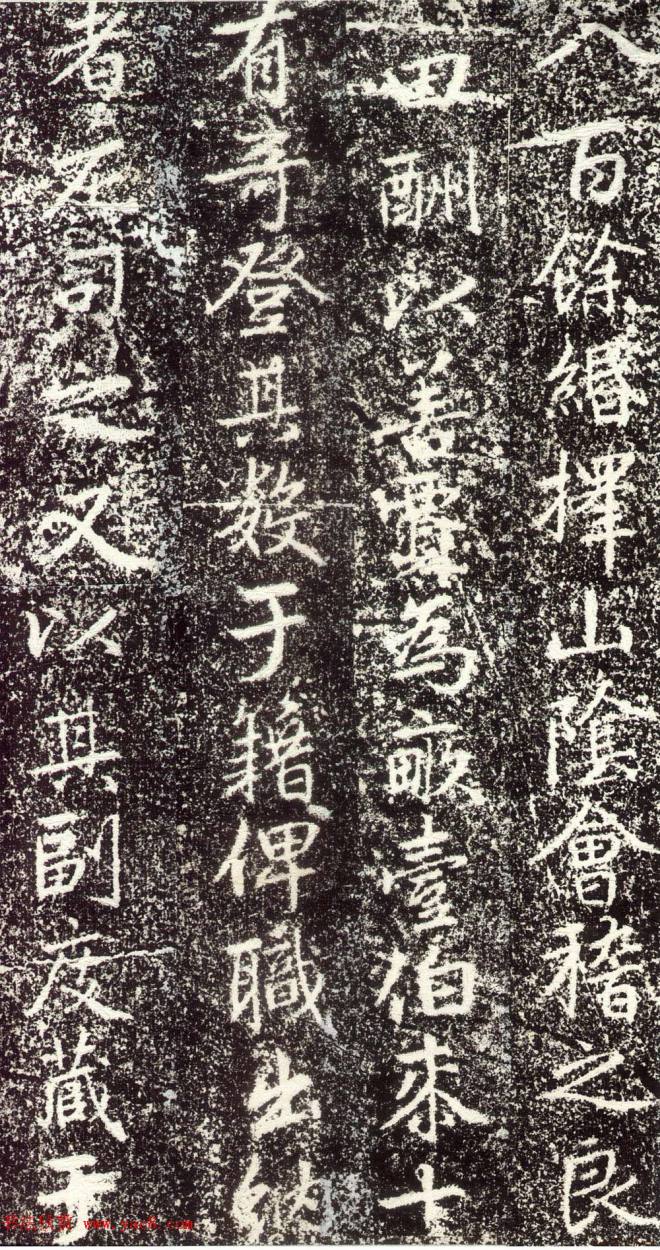 八百餘緡擇山陰會稽之良
田酬以善賈為畝壹伯柒十
有奇登其數于籍俾職出納
者不可之又以其副庋藏于
www.yac8.com